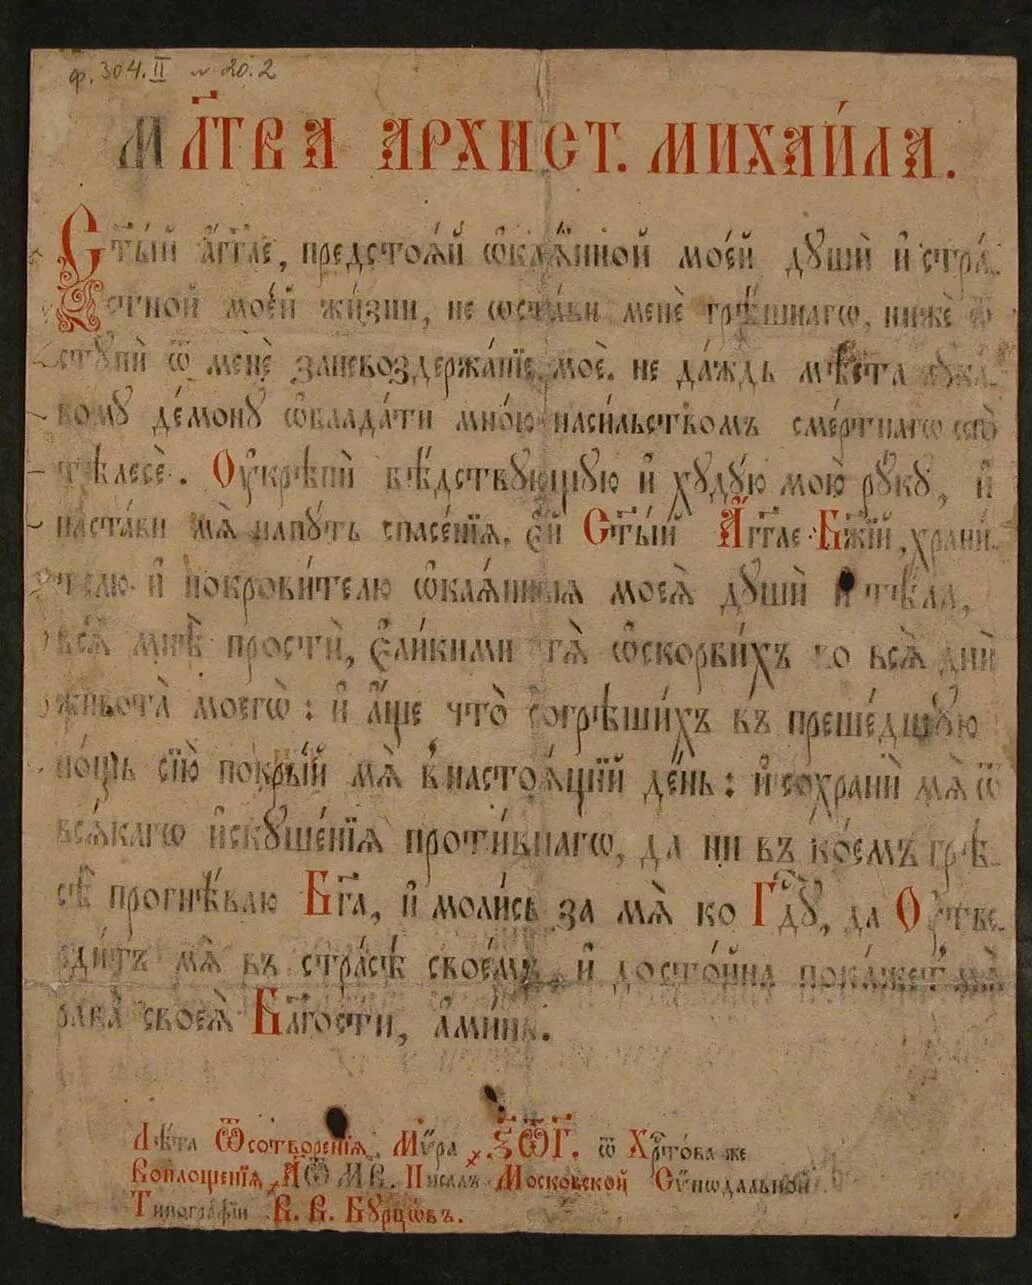 ф. 304. II № 20.2
МЛ҃ТВА АРХИСТ. МИХАИ́ЛА.
Ст҃ы́й а҆́гг҃ле, предстоѧ́й ѡ҆каѧ́нной мое́й душѝ и҆ стра́-
стной мое́й жи́зни, не ѡ҆ста́ви менѐ грѣ́шнагѡ, нижѐ ѿ
ступѝ ѿ менѐ заневоздержа́нїе моѐ. не да́ждь мѣ́ста лука́-
вому де́мону ѡ҆блада́ти мно́ю наси́льствомъ сме́ртнагѡ сегѡ̀
тѣлесѐ. Оу҆крѣпѝ бѣ́дствующую и҆ худу́ю мою̀ ру́ку, и҆
наста́ви мѧ̀ напу́ть спасе́нїѧ. є҆́й Ст҃ы́й А҆́гг҃ле Бж҃їй, храни́-
телю и҆ покрови́телю ѡ҆каѧ́нныѧ моеѧ̀ душѝ и҆ тѣ́ла,
всѧ̑ мнѣ̀ простѝ, є҆ли́кими тѧ̀ ѡ҆скорби́хъ во всѧ̑ дни̑
живота̀ моегѡ̀: и҆ а҆́ще что̀ согрѣши́хъ въ преше́дшую
но́щь сїю̀ покры́й мѧ̀ в настоѧ́щїй де́нь: и҆ сохранѝ мѧ̀ ѿ
всѧ́кагѡ и҆скуше́нїѧ проти́внагѡ, да ни въ ко́емъ грѣ-
сѣ̀ прогнѣ́ваю Бг҃а, и҆ моли́сь за мѧ̀ ко Гд҃у, да Оу҆тве-
рди́тъ мѧ̀ въ стра́сѣ своéмъ, и҆ досто́йна пока́жетъ мѧ̀
раба̀ своеѧ̀ Бл҃гости, а҆ми́нь.
Лѣ́та Ѿсотворе́нїѧ Мѵ́ра ҂ЗѾГ. ѿ Хрⷭ҇това же
Воплоще́нїѧ ҂АѾМВ. Писалъ Московской Сѵнѡдальной
Типографїи В. В. Бурцѡвъ.